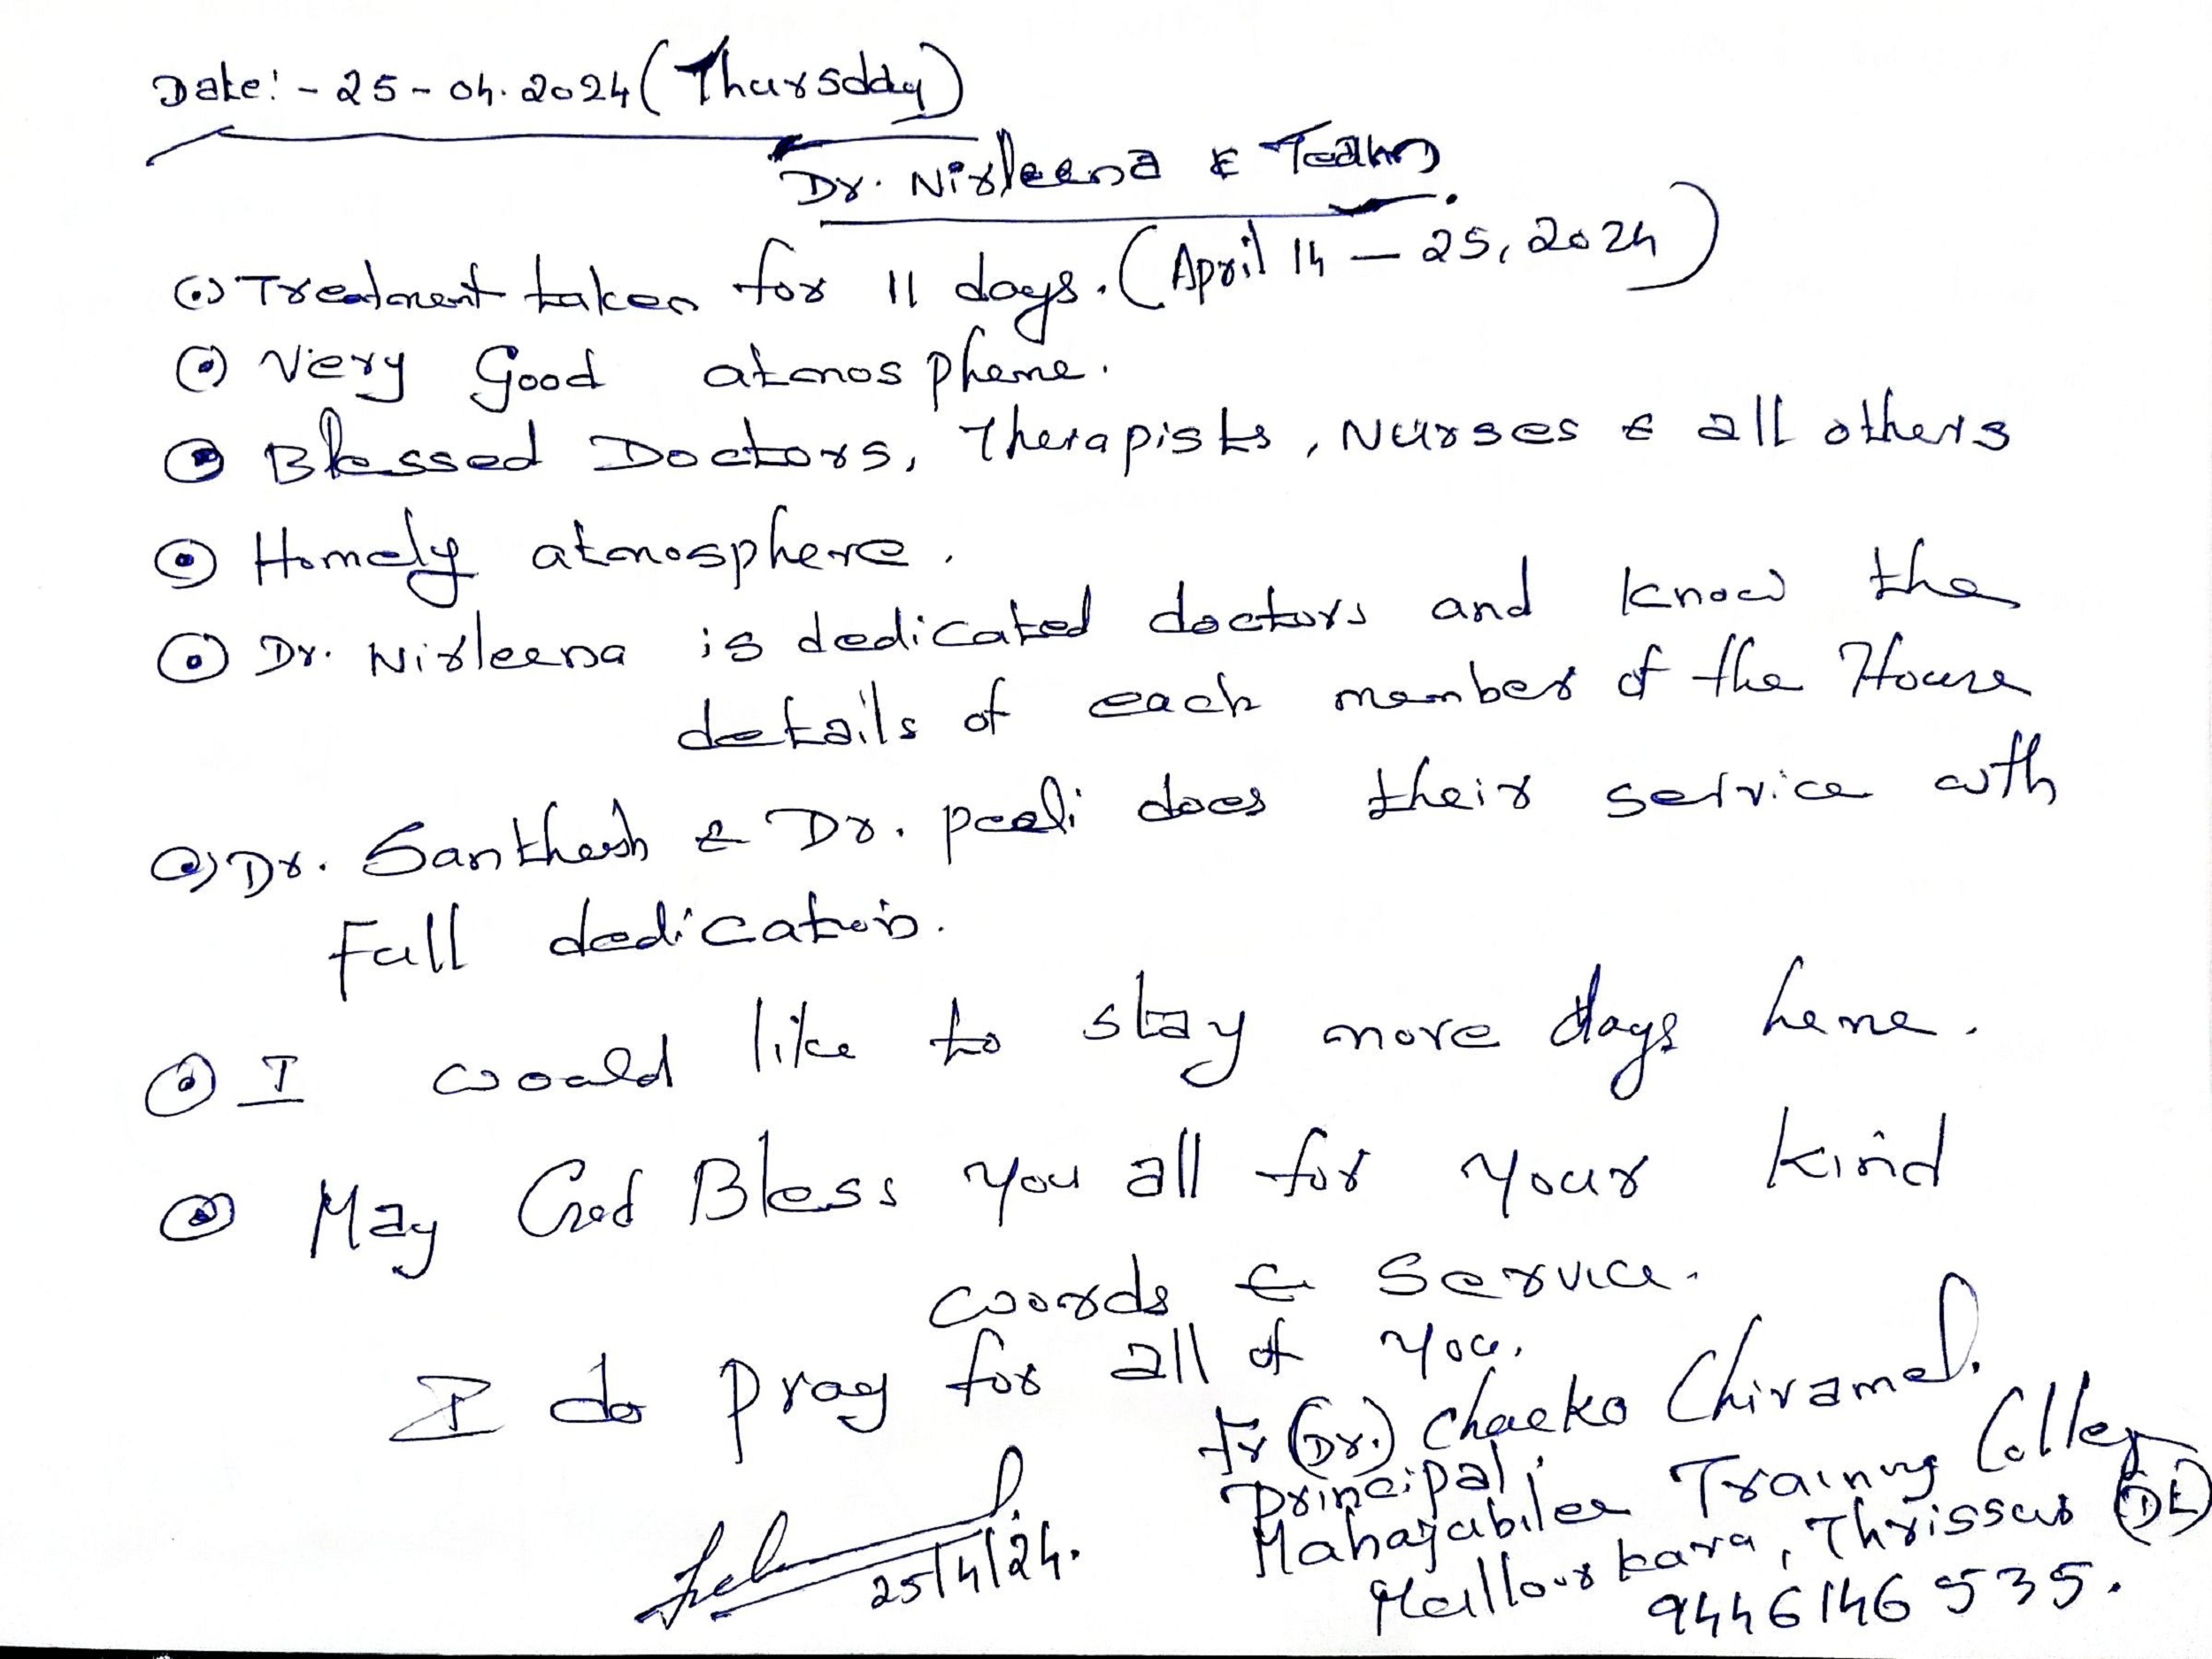 Date:- 25-04.2024 (Thursday)
Dr. Nirleena & Team.
Treatment taken for 11 days. (April 14 – 25, 2024)
Very Good atmosphere.
Blessed Doctors, Therapists, Nurses & all others
Homely atmosphere.
Dr. Nirleena is dedicated doctors and know the
details of each member of the House
Dr. Santhosh & Dr. does their service with
Full dedication.
I would like to stay more days here.
May God Bless you all for your kind
words & service.
I do pray for all of you.
Fr (Dr.) Chacko Chiramel.
Principal
Training College
Thrissur (Dt)
9446146535.
25/4/24.